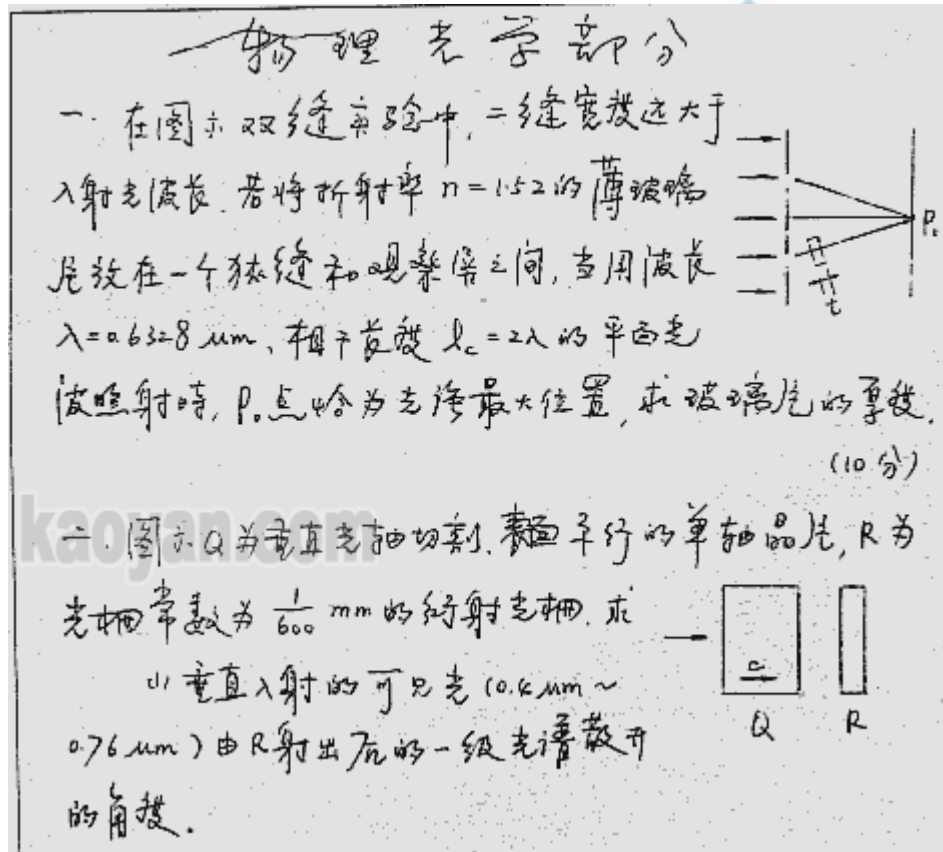 物理光学部分
一. 在图示双缝实验中, 二缝宽度远大于
入射光波长. 若将折射率 n=1.52的薄玻璃
片放在一个狭缝和观察屏之间, 当用波长
λ=0.6328 μm、相干长度 lc=2λ 的平面光
波照射时, P₀点恰为光强最大位置, 求玻璃片的厚度.
(10分)
P₀
t
kaoyan.com
二. 图示Q为垂直光轴切割、表面平行的单轴晶片, R为
光栅常数为 1/600 mm 的衍射光栅. 求
(1) 垂直入射的可见光 (0.4 μm ~
0.76 μm) 由R射出后的一级光谱散开
的角度.
Q R